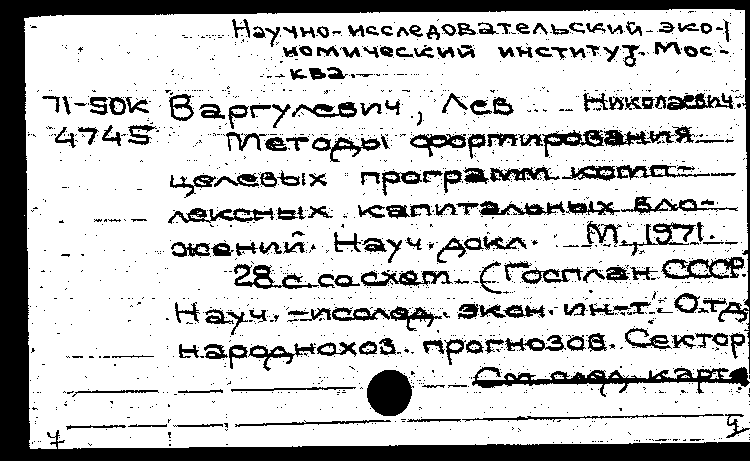 Научно-исследовательский эко-
номический институт. Мос-
ква.
71-50к Варгулевич, Лев Николаевич.
4745 Методы формирования
целевых программ комп-
лексных капитальных вло-
жений. Науч. докл. М., 1971.
28 с. со схем. (Госплан СССР.
Науч.-исслед. экон. ин-т. Отд.
народнохоз. прогнозов. Сектор
См. след. карт.
4 4